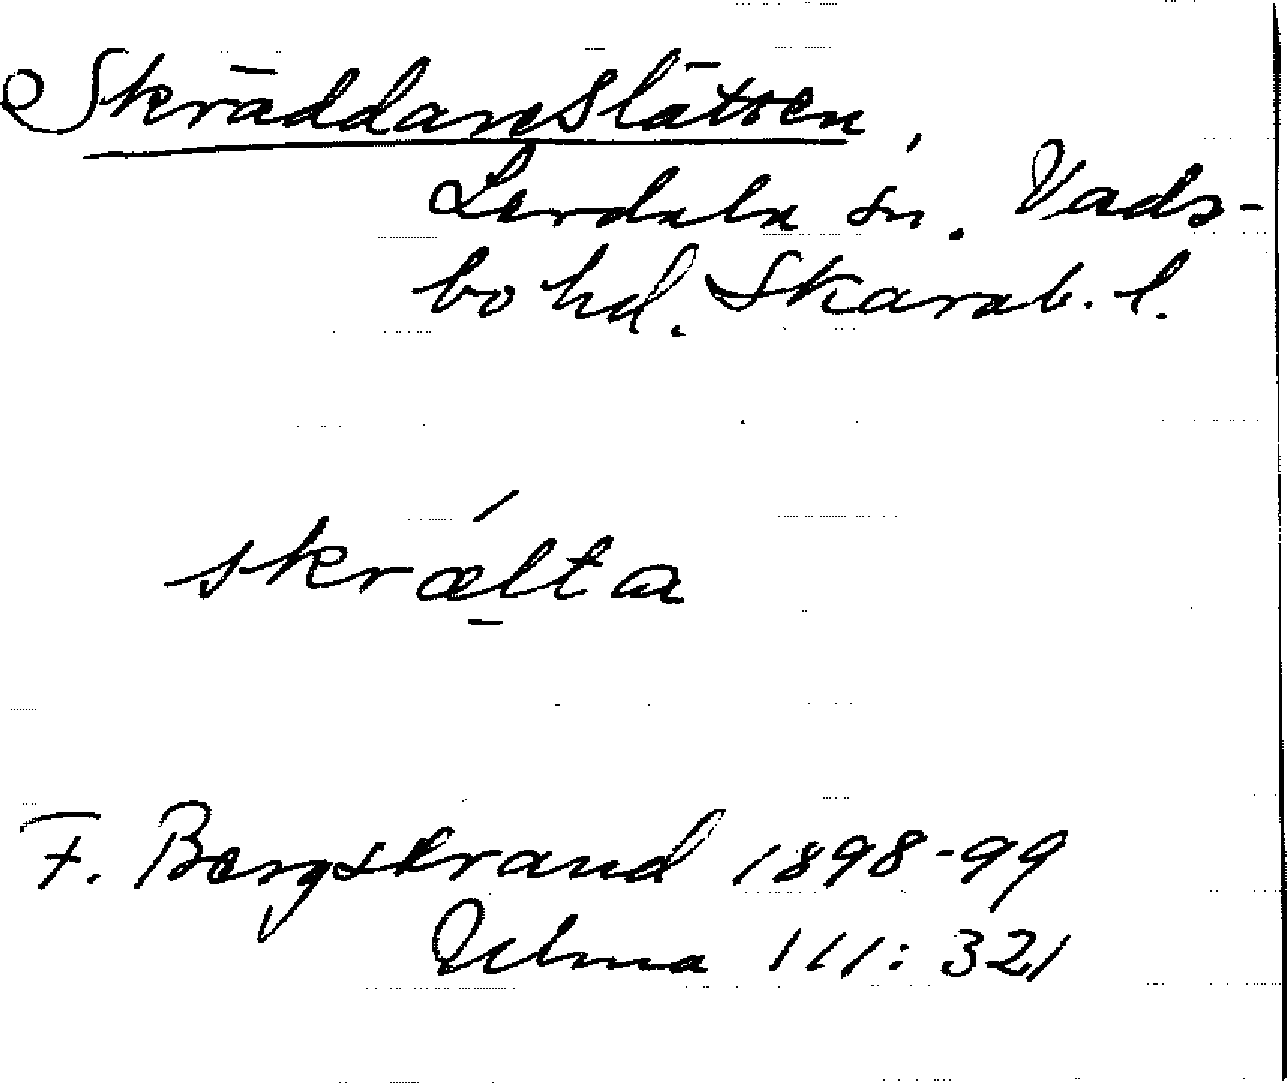 Skräddareslätten,
Lerdala sn. Vads-
bo hd. Skarab. l.
skrælta
F. Bergstrand 1898-99
Ulma 111:321